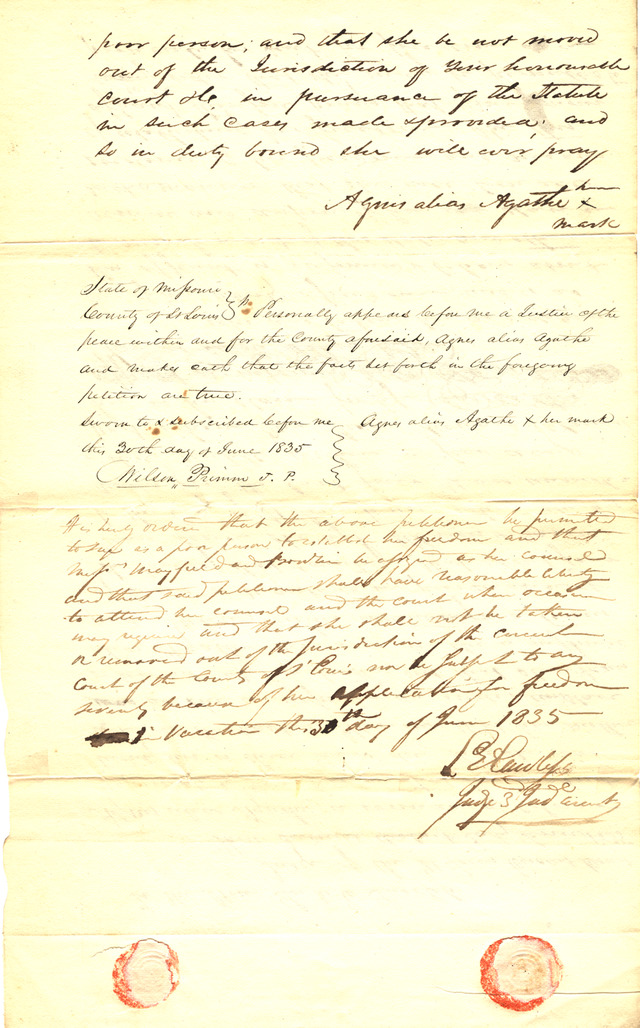 poor person; and that she be not moved
out of the Jurisdiction of Your honourable
court &c in pursuance of the Statute
in such cases made & provided; and
so in duty bound she will ever pray
Agnes alias Agathe her x
mark
State of Missouri
County of St Louis } Personally appears before me a Justice of the
peace within and for the County aforesaid, Agnes alias Agathe
and makes oath that the facts set forth in the foregoing
petition are true.
Sworn to & subscribed before me
this 30th day of June 1835
Wilson Primm J. P.
Agnes alias Agathe x her mark
It is hereby ordered that the above petitioner be permitted
to sue as a poor person to establish her freedom and that
Messrs Mayfield and be assigned as her counsel
and that said petitioner shall have reasonable liberty
to attend her counsel and the court when occasion
may require and that she shall not be taken
or removed out of the Jurisdiction of the circuit
Court of the County of St Louis nor be subject to any
severity because of her application for freedom
in Vacation this 30th day of June 1835
L E Lawless
Judge 3d Jud Circuit